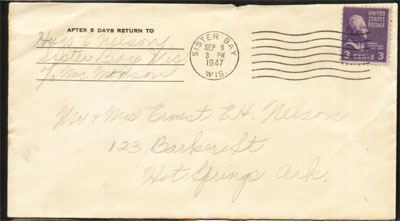 AFTER 5 DAYS RETURN TO
Nelson
Sister Bay Wis
SISTER BAY
SEP 9
3 PM
1947
WIS.
UNITED
STATES
POSTAGE
3 CENTS 3
Mr & Mrs Ernest E.H. Nelson
123 Barker St
Hot Springs Ark.